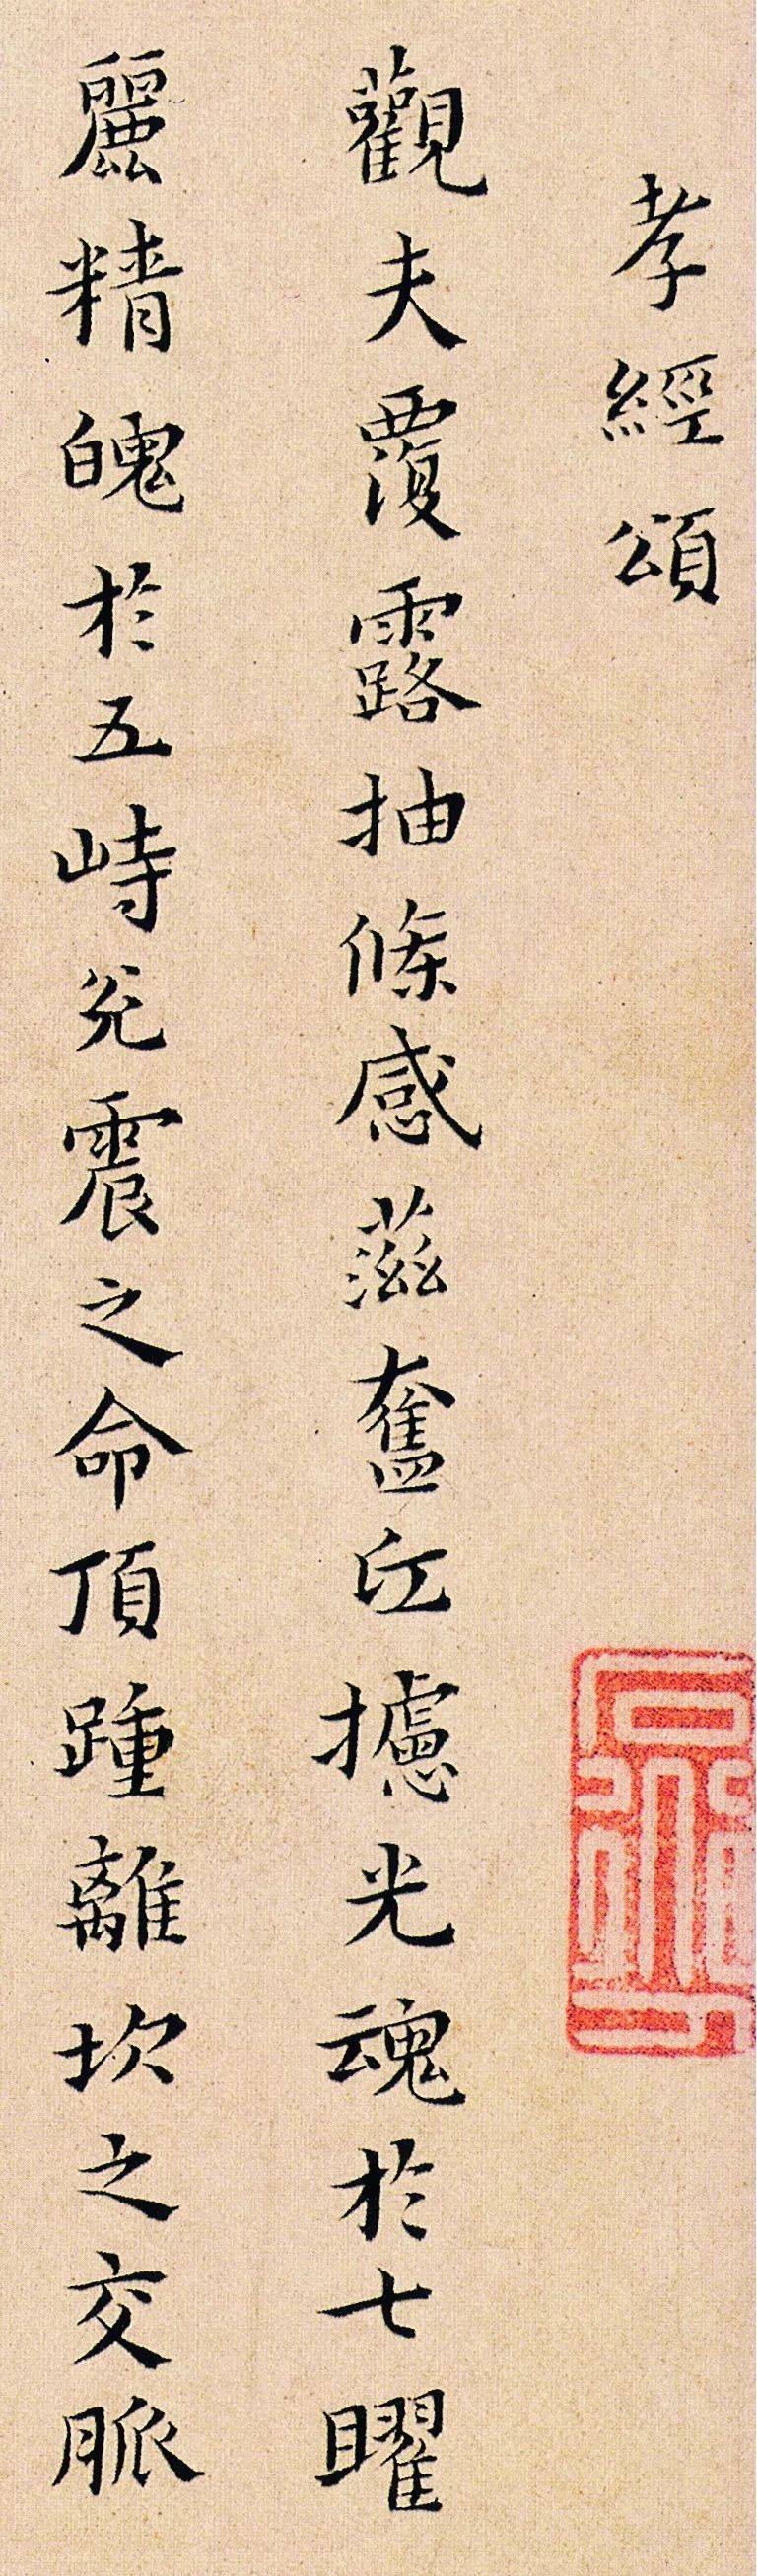 孝經頌
觀夫覆露抽條感滋奮攄光魂於七曜
麗精魄於五峙兊震之命頂踵離坎之交脈